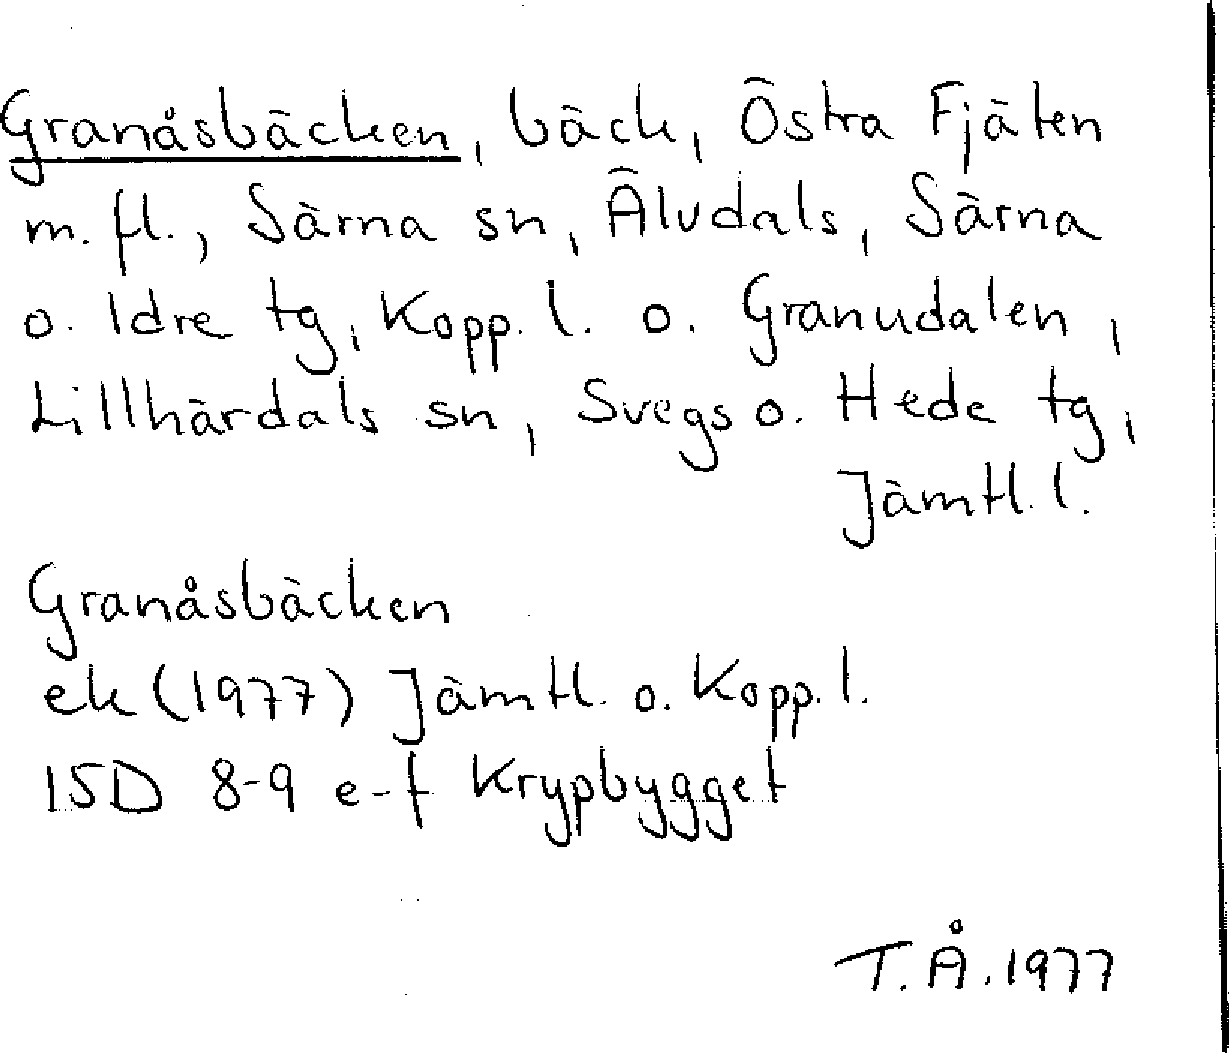 Granåsbäcken, bäck, Östra Fjäten
m. fl., Särna sn, Älvdals, Särna
o. Idre tg, Kopp. l. o. Granudalen,
Lillhärdals sn, Svegs o. Hede tg,
Jämtl. l.
Granåsbäcken
ek (1977) Jämtl. o. Kopp. l.
15D 8-9 e-f Krypbygget
T. Å. 1977